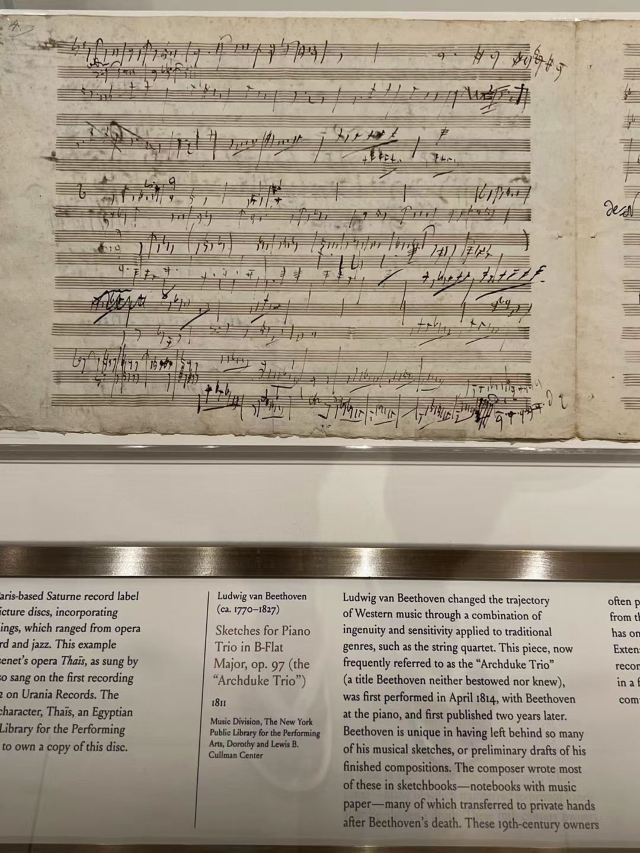 aris-based Saturne record label
icture discs, incorporating
ings, which ranged from opera
rd and jazz. This example
senet's opera Thaïs, as sung by
so sang on the first recording
2 on Urania Records. The
character, Thaïs, an Egyptian
Library for the Performing
to own a copy of this disc.
Ludwig van Beethoven
(ca. 1770–1827)
Sketches for Piano
Trio in B-Flat
Major, op. 97 (the
“Archduke Trio”)
1811
Music Division, The New York
Public Library for the Performing
Arts, Dorothy and Lewis B.
Cullman Center
Ludwig van Beethoven changed the trajectory
of Western music through a combination of
ingenuity and sensitivity applied to traditional
genres, such as the string quartet. This piece, now
frequently referred to as the “Archduke Trio”
(a title Beethoven neither bestowed nor knew),
was first performed in April 1814, with Beethoven
at the piano, and first published two years later.
Beethoven is unique in having left behind so many
of his musical sketches, or preliminary drafts of his
finished compositions. The composer wrote most
of these in sketchbooks—notebooks with music
paper—many of which transferred to private hands
after Beethoven's death. These 19th-century owners
often p
from th
has on
Exten
recor
in a f
com